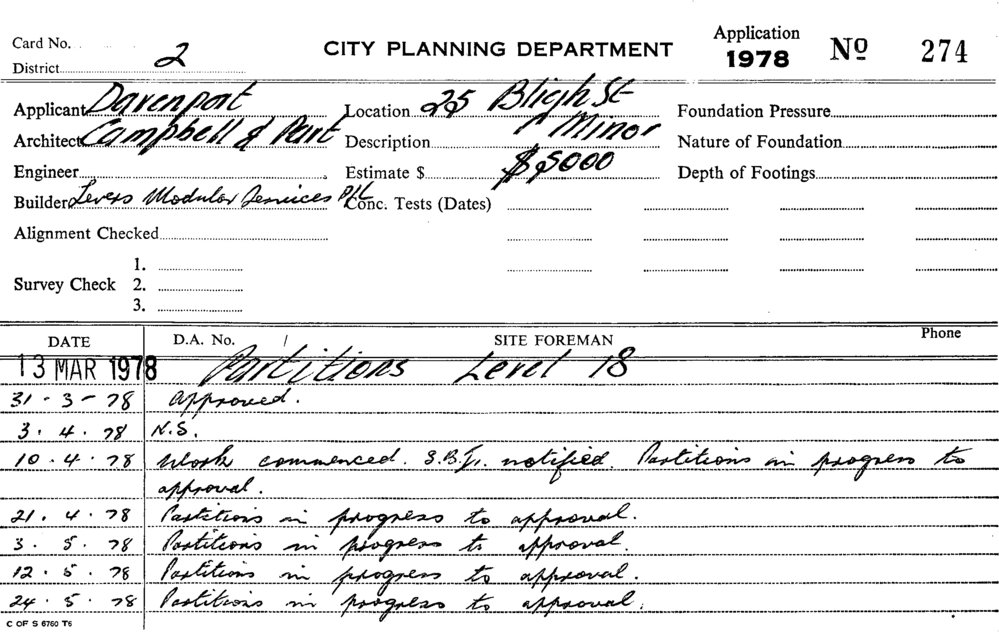 Card No.
CITY PLANNING DEPARTMENT
Application
1978 Nº 274
District 2
Applicant Davenport Location 25 Bligh St Foundation Pressure
Architect Campbell & Part Description Minor Nature of Foundation
Engineer Estimate $ $5000 Depth of Footings
Builder Levers Modular Services P/L Conc. Tests (Dates)
Alignment Checked
1.
Survey Check 2.
3.
DATE D.A. No. / SITE FOREMAN Phone
13 MAR 1978 Partitions Level 18
31-3-78 Approved.
3.4.78 N.S.
10.4.78 Work commenced. notified. Partitions in progress to
approval.
21.4.78 Partitions in progress to approval.
3.5.78 Partitions in progress to approval.
12.5.78 Partitions in progress to approval.
24.5.78 Partitions in progress to approval.
C OF S 6760 T6